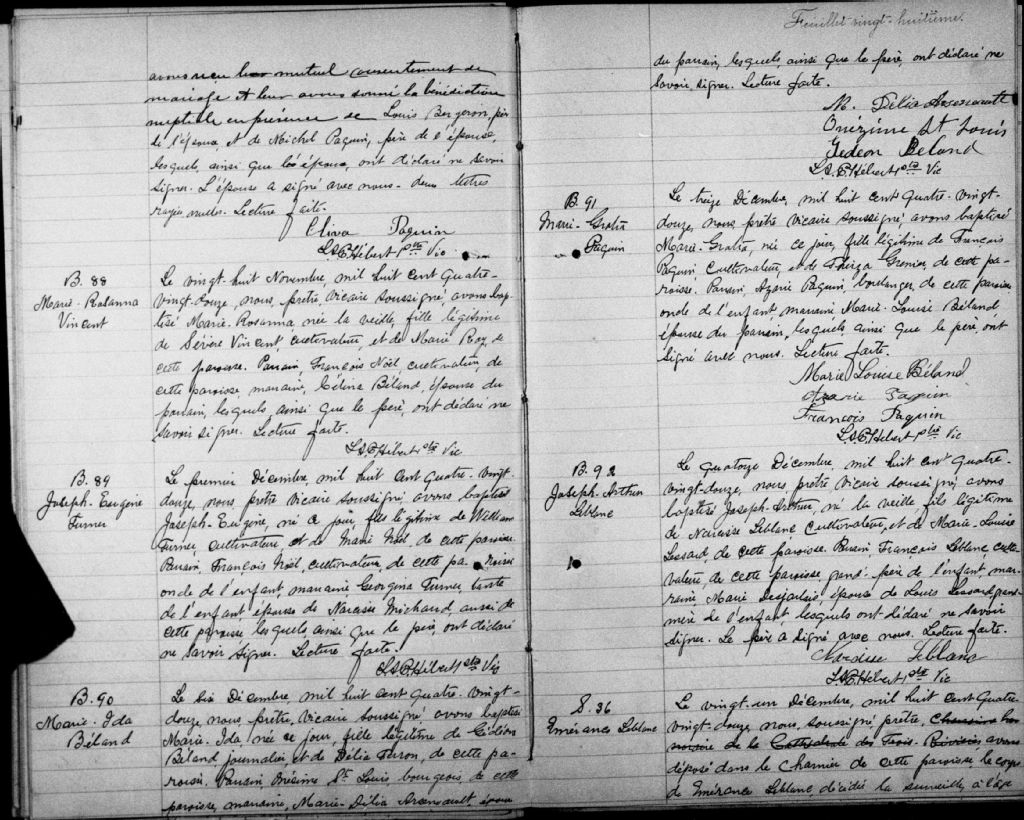 avons reçu leur mutuel consentement de
mariage et leur avons donné la bénédiction
nuptiale en présence de Louis Bergeron, père
de l'époux, et de Michel Paquin, père de l'épouse,
lesquels, ainsi que les époux, ont déclaré ne savoir
signer. L'épouse a signé avec nous. deux lettres
rayées nulles. Lecture faite.
Cliva Paquin
L.S.P. Hébert ptre Vic
B. 88
Marie-Rosanna
Vincent
Le vingt-huit Novembre, mil huit cent Quatre-
vingt-douze, nous, prêtre, Vicaire soussigné, avons bap-
tisé Marie-Rosanna née la veille, fille légitime
de Sévère Vincent, cultivateur, et de Marie Roy, de
cette paroisse. Parrain, François Noël, cultivateur, de
cette paroisse, marraine, Célina Béland, épouse du
parrain, lesquels, ainsi que le père, ont déclaré ne
savoir signer. Lecture faite.
L.S.P. Hébert ptre Vic
B. 89
Joseph-Eugène
Turner
Le premier Décembre, mil huit cent Quatre-vingt-
douze, nous prêtre Vicaire soussigné, avons baptisé
Joseph-Eugène, né ce jour, fils légitime de William
Turner, cultivateur et de Marie Noël, de cette paroisse.
Parrain, François Noël, cultivateur, de cette pa-roisse
oncle de l'enfant, marraine Georgina Turner, tante
de l'enfant, épouse de Narcisse Michaud aussi de
cette paroisse, lesquels, ainsi que le père, ont déclaré
ne savoir signer. Lecture faite.
L.S.P. Hébert ptre Vic
B. 90
Marie-Ida
Béland
Le six Décembre, mil huit cent Quatre-vingt-
douze, nous prêtre, Vicaire soussigné, avons baptisé
Marie-Ida, née ce jour, fille légitime de Gédéon
Béland journalier, et de Délia Turon, de cette pa-
roisse. Parrain Onésime St Louis, bourgeois de cette
paroisse, marraine, Marie-Délia Arsenault, épouse
Feuillet vingt-huitième.
du parrain, lesquels, ainsi que le père, ont déclaré ne
savoir signer. Lecture faite.
M. Délia Arseneault
Onézime St Louis
Gedeon Beland
L.S.P. Hébert ptre Vic
B. 91
Marie-Gratia
Paquin
Le treize Décembre, mil huit cent Quatre-vingt-
douze, nous, prêtre Vicaire soussigné avons baptisé
Marie-Gratia, née ce jour, fille légitime de François
Paquin Cultivateur, et de Thirza Grenier, de cette pa-
roisse. Parrain, Azarie Paquin, boulanger, de cette paroisse
oncle de l'enfant, marraine Marie-Louise Béland
épouse du parrain, lesquels ainsi que le père, ont
signé avec nous. Lecture faite.
Marie Louise Béland
Azarie Paquin
François Paquin
L.S.P. Hébert ptre Vic
B. 92
Joseph-Arthur
Leblanc
Le quatorze Décembre, mil huit cent Quatre-
vingt-douze, nous, prêtre Vicaire soussigné, avons
baptisé Joseph-Arthur, né la veille, fils légitime
de Narcisse Leblanc Cultivateur, et de Marie-Louise
Lessard, de cette paroisse. Parrain, François Leblanc, culti-
vateur, de cette paroisse, grand-père de l'enfant, mar-
raine Marie Desjarlais, épouse de Louis Lessard, grand-
mère de l'enfant lesquels ont déclaré ne savoir
signer. Le père a signé avec nous. Lecture faite.
Narsisse Leblanc
L.S.P. Hébert ptre Vic
S. 36
Emérance Leblanc
Le vingt-un Décembre, mil huit cent Quatre-
vingt-douze, nous, soussigné, prêtre, Chanoine ho-
noraire de la Cathédrale des Trois-Rivières avons
déposé dans le charnier de cette paroisse, le corps
de Emérance Leblanc décédée la surveille, à l'âge